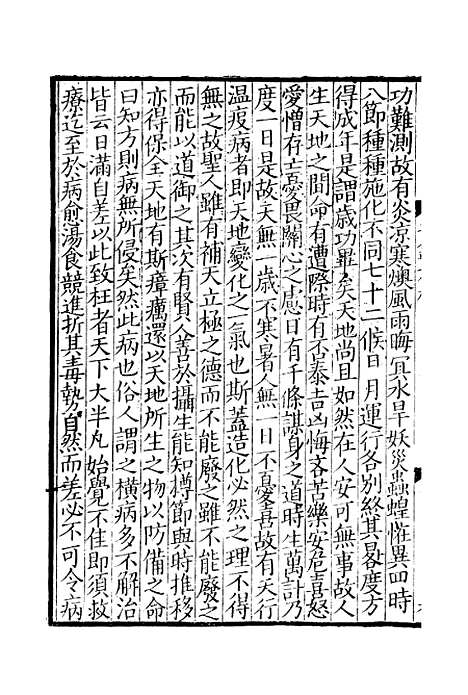 功難測故有炎涼寒燠風雨晦冥水旱妖災蟲蝗恠異四時
八節種種施化不同七十二候日月運行各別終其晷度方
得成年是謂歲功畢矣天地尚且如然在人安可無事故人
生天地之間命有遭際時有否泰吉凶悔吝苦樂安危喜怒
愛憎存亡憂畏關心之慮日有千條謀身之道時生萬計乃
度一日是故天無一歲不寒暑人無一日不憂喜故有天行
溫疫病者即天地變化之一氣也斯蓋造化必然之理不得
無之故聖人雖有補天立極之德而不能廢之雖不能廢之
而能以道御之其次有賢人善於攝生能知撙節與時推移
亦得保全天地有斯瘴癘還以天地所生之物以防備之命
曰知方則病無所侵矣然此病也俗人謂之橫病多不解治
皆云日滿自差以此致枉者天下大半凡始覺不佳即須救
療迄至於病愈湯食競進折其毒勢自然而差必不可令病